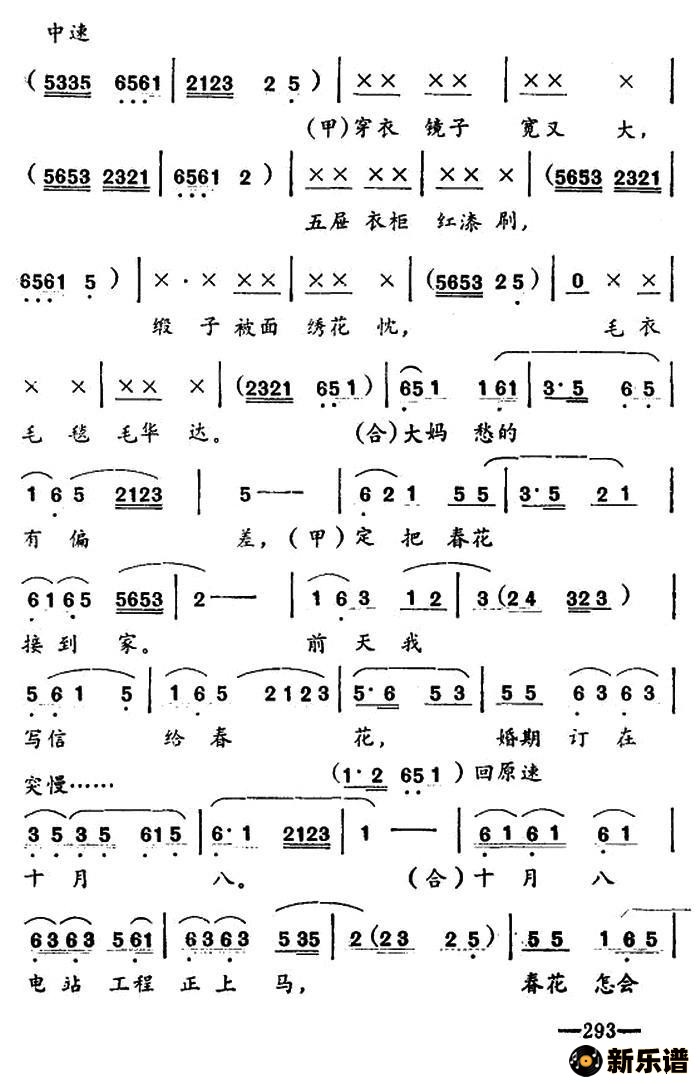 中速
(5335 6561 | 2123 2 5) | ×× ×× | ×× ×
(甲)穿衣 镜子 宽又 大,
(5653 2321 | 6561 2) | ×× ×× | ×× × | (5653 2321
五屉 衣柜 红漆 刷,
6561 5) | × · × ×× | ×× × | (5653 25) | 0 × ×
缎 子 被面 绣花 枕, 毛 衣
× × | ×× × | (2321 651) | 651 161 | 3·5 65
毛 毯 毛华 达。 (合)大妈 愁的
1 6 5 2123 | 5—— | 6 2 1 5 5 | 3·5 2 1
有 偏 差,(甲)定 把 春花
6165 5653 | 2—— | 1 6 3 1 2 | 3 (24 323)
接到 家。 前 天 我
5 6 1 5 | 1 6 5 2123 | 5·6 5 3 | 5 5 63 63
写信 给 春 花, 婚期 订 在
突慢…… (1·2 651) 回原速
35 35 615 | 6·1 2123 | 1 —— | 61 61 61
十 月 八。 (合)十 月 八
6363 561 | 6363 535 | 2 (23 25) | 55 165
电 站 工程 正 上 马, 春花 怎会
—293—
新乐谱